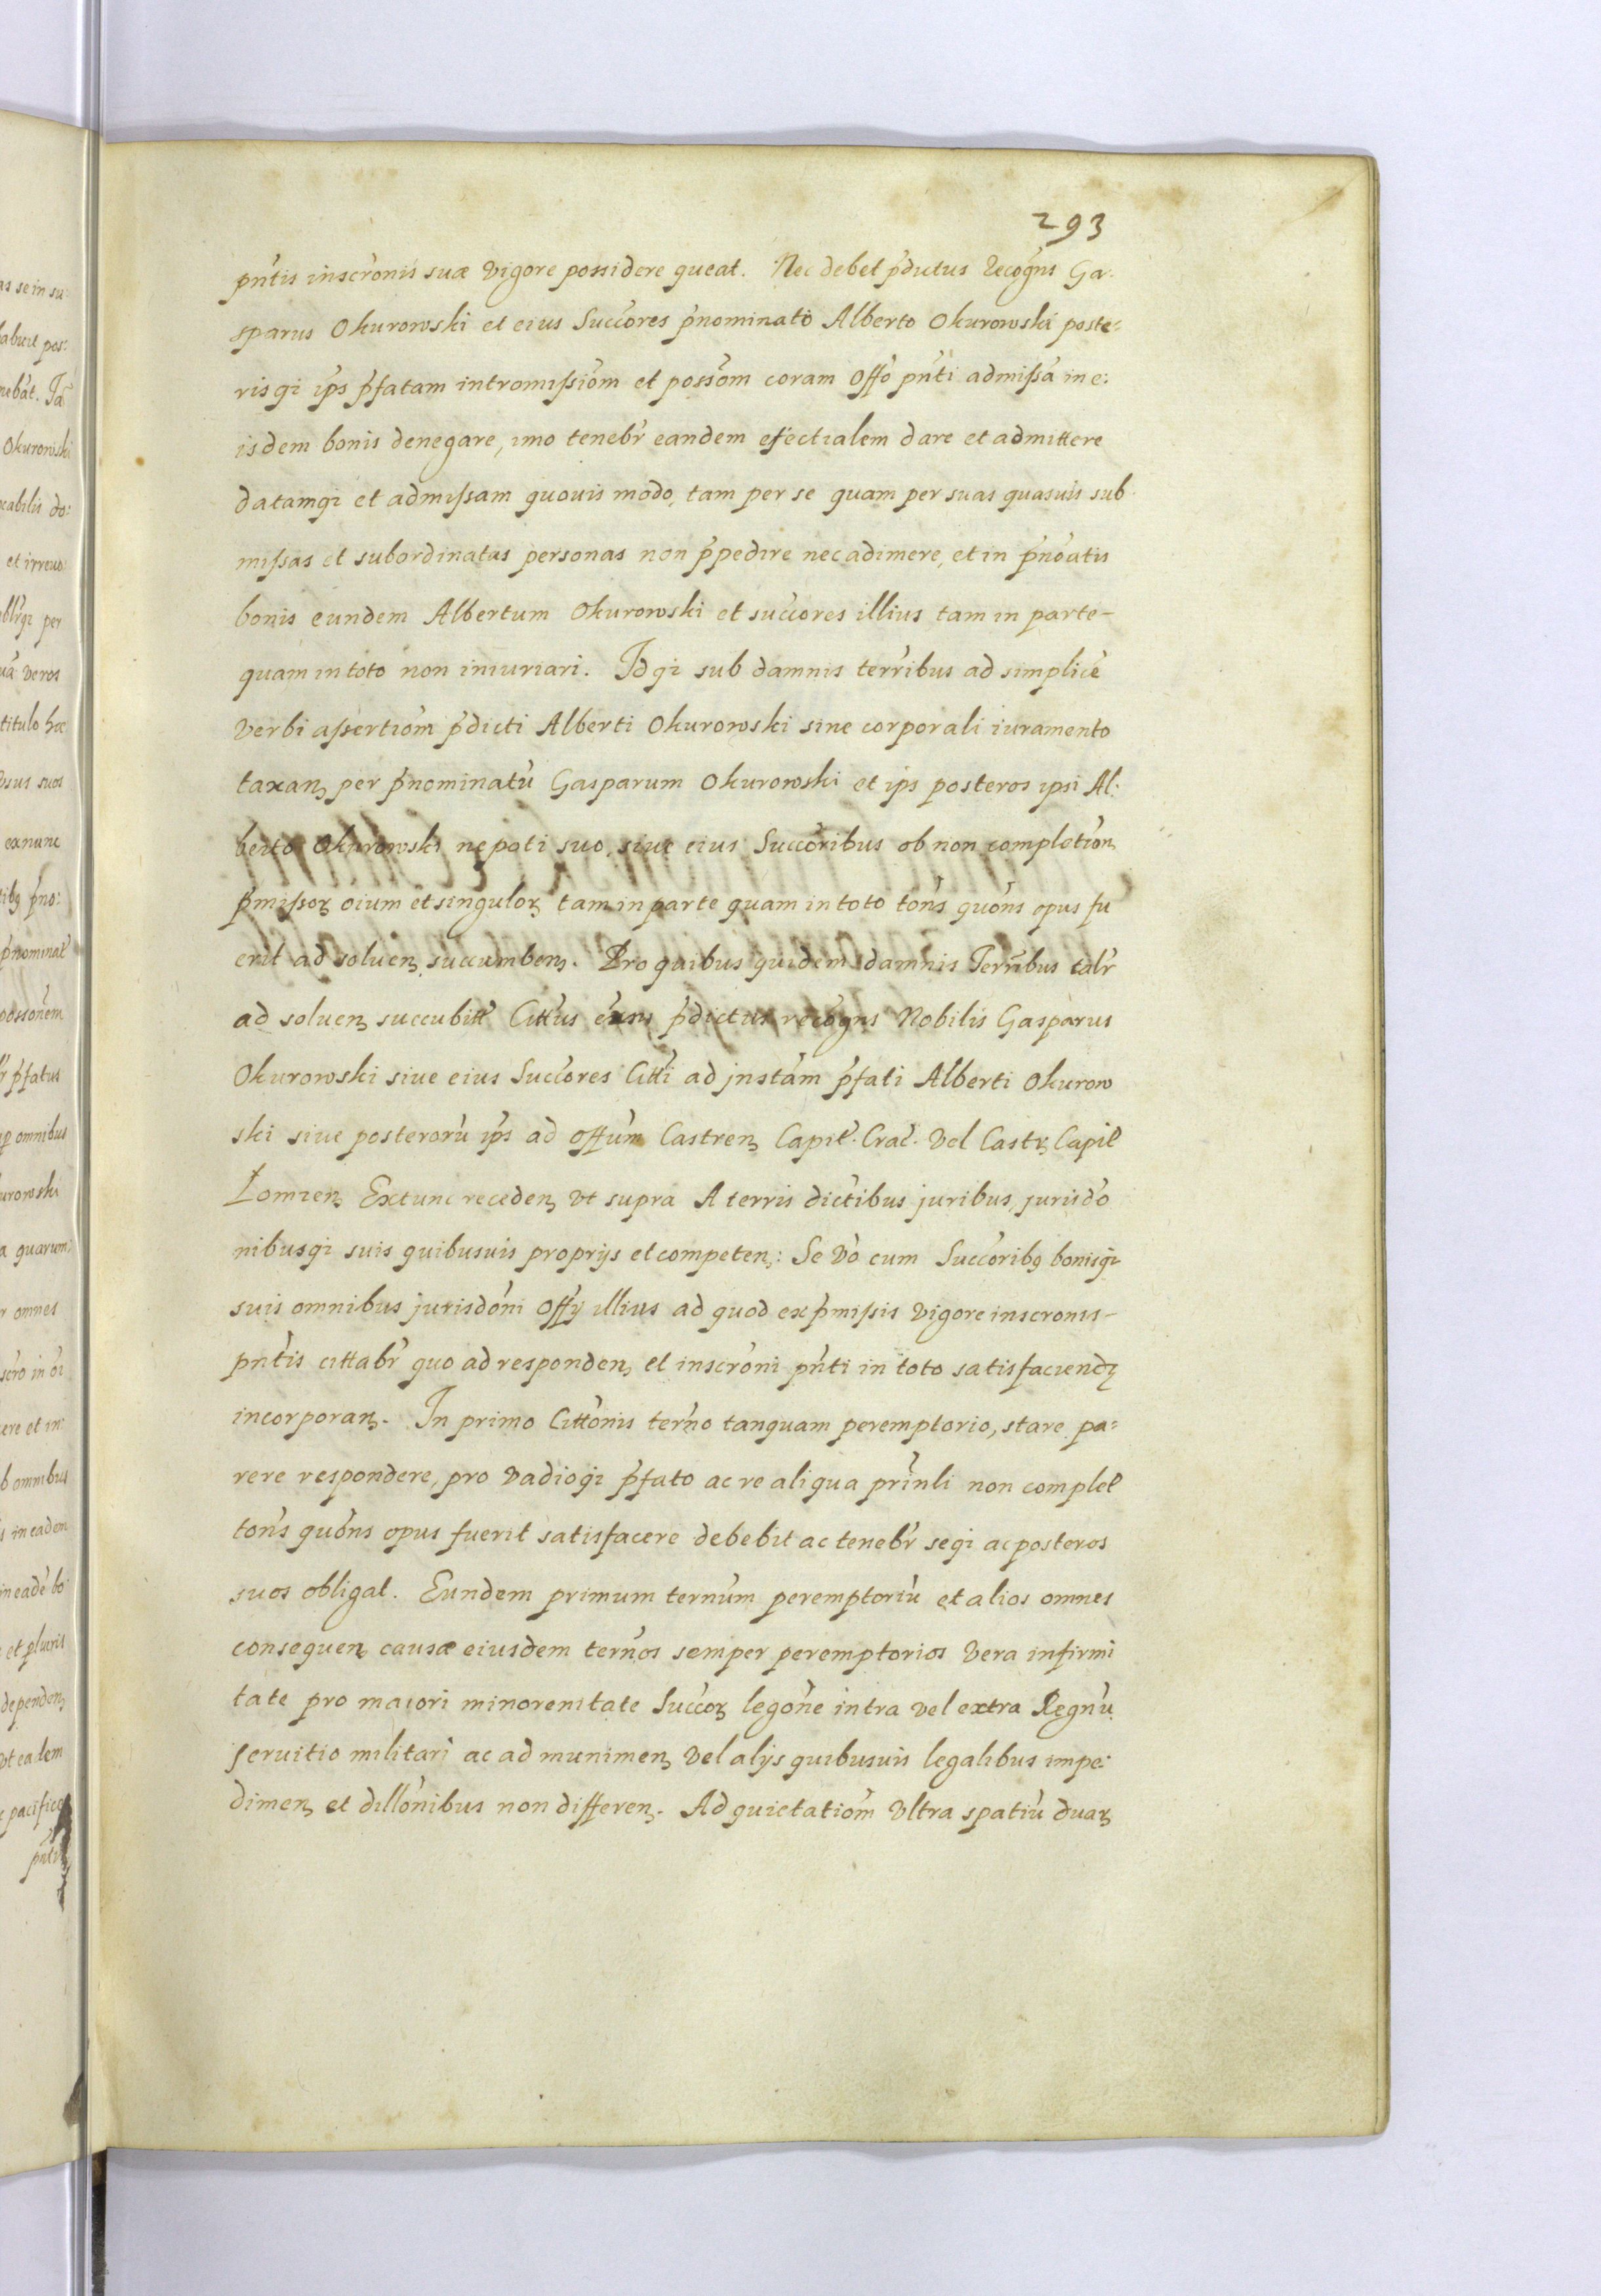 293
pn̄tis inscr̄onis suæ vigore possidere queat. Nec debet p̄dictus recogn̄s Ga.
sparus Okurowski et eius Succ̄ores p̄nominato Alberto Okurowski poste:
risqȝ ip̄s p̄fatam intromissiōm et possōm coram Off̄o pn̄ti admissā in e:
isdem bonis denegare, imo tenebr̄ eandem efectialem dare et admittere
datamqȝ et admissam quouis modo, tam per se quam per suas quasuis sub
missas et subordinatas personas non p̄pedire nec adimere, et in p̄nōatis
bonis eundem Albertum Okurowski et succ̄ores illius tam in parte-
quam in toto non iniuriari. Idqȝ sub damnis terr̄ibus ad simplicē
verbi assertiōm p̄dicti Alberti Okurowski sine corporali iuramento
taxanȝ per p̄nominatū Gasparum Okurowski et ip̄s posteros ipsi Al:
berto Okurowski nepoti suo, siue eius Succ̄oribus ob non completiōnȝ
p̄missoȝ oium et singuloȝ tam in parte quam in toto ton̄s quōns opus fu
erit ad soluenȝ succumbenȝ. Pro quibus quidem damnis Terr̄ibus talr̄
ad soluenȝ succubitt̄ Citt̄us p̄dictus recogn̄s Nobilis Gasparus
Okurowski siue eius Succ̄ores Citt̄i ad jnstām p̄fati Alberti Okurow
ski siue posterorū ip̄s ad offūm Castrenȝ Capit̄. Crac̄. vel Castrȝ Capit̄
Łomzenȝ Extunc recedenȝ vt supra A terris dictibus juribus, jurisdo
nibusqȝ suis quibusuis proprijs et competenȝ: Se v̄o cum Succ̄oribȝ bonisqȝ
suis omnibus jurisdōni Offȳ illius ad quod exp̄missis vigore inscronis-
pn̄tis cittabr̄ quo ad respondenȝ et inscr̄oni pn̄ti in toto satisfaciendȝ
incorporanȝ. In primo Cittōnis tern̄o tanquam peremptorio, stare pa:
rere respondere, pro vadioqȝ p̄fato ac re aliqua prin̄li non complet̄
ton̄s quōns opus fuerit satisfacere debebit ac tenebr̄ seqȝ ac posteros
suos obligat. Eundem primum tern̄um peremptoriū et alios omnes
consequenȝ causæ eiusdem tern̄os semper peremptorios vera infirmi
tate pro maiori minorenitate Succ̄oȝ legōne intra vel extra Regnū
seruitio militari ac ad munimenȝ vel alijs quibusuis legalibus impe:
dimenȝ et dillōnibus non differenȝ. Ad quietatiōm vltra spatiū duaȝ